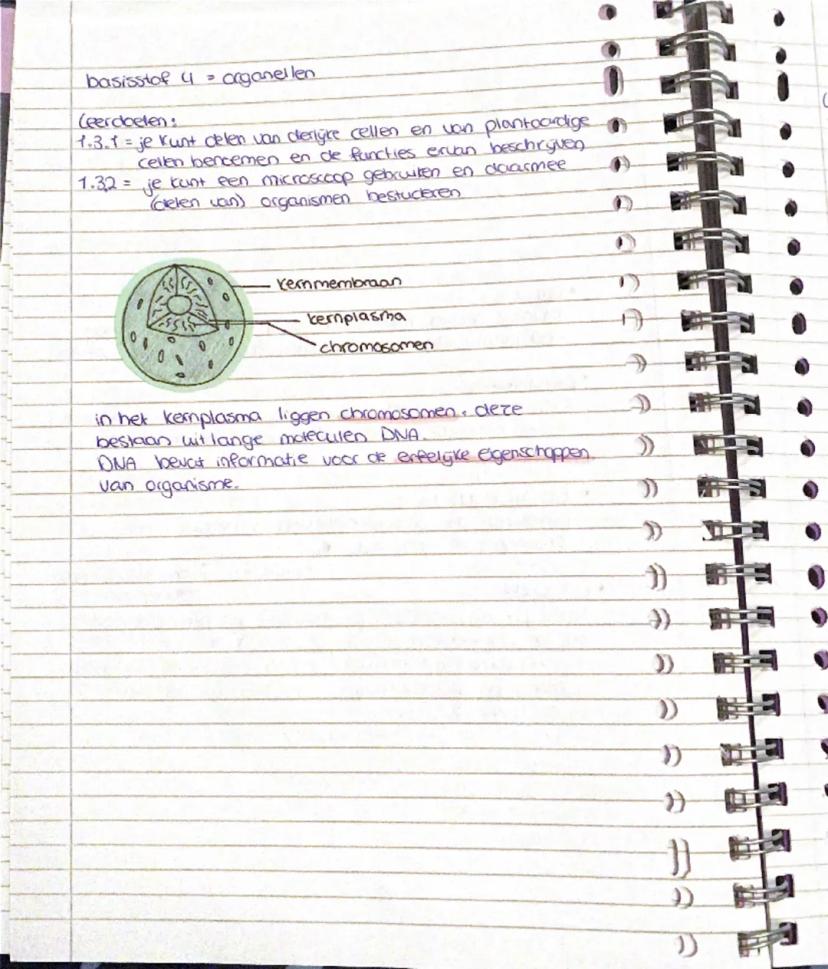 basisstof 4 = organellen
Leerdoelen:
1.3.1 = je kunt delen van dierlijke cellen en van plantaardige
cellen benoemen en de functies ervan beschrijven
1.3.2 = je kunt een microscoop gebruiken en daarmee
(delen van) organismen bestuderen
kernmembraan
kernplasma
chromosomen
in het kernplasma liggen chromosomen. deze
bestaan uit lange moleculen DNA.
DNA bevat informatie voor de erfelijke eigenschappen
van organisme.